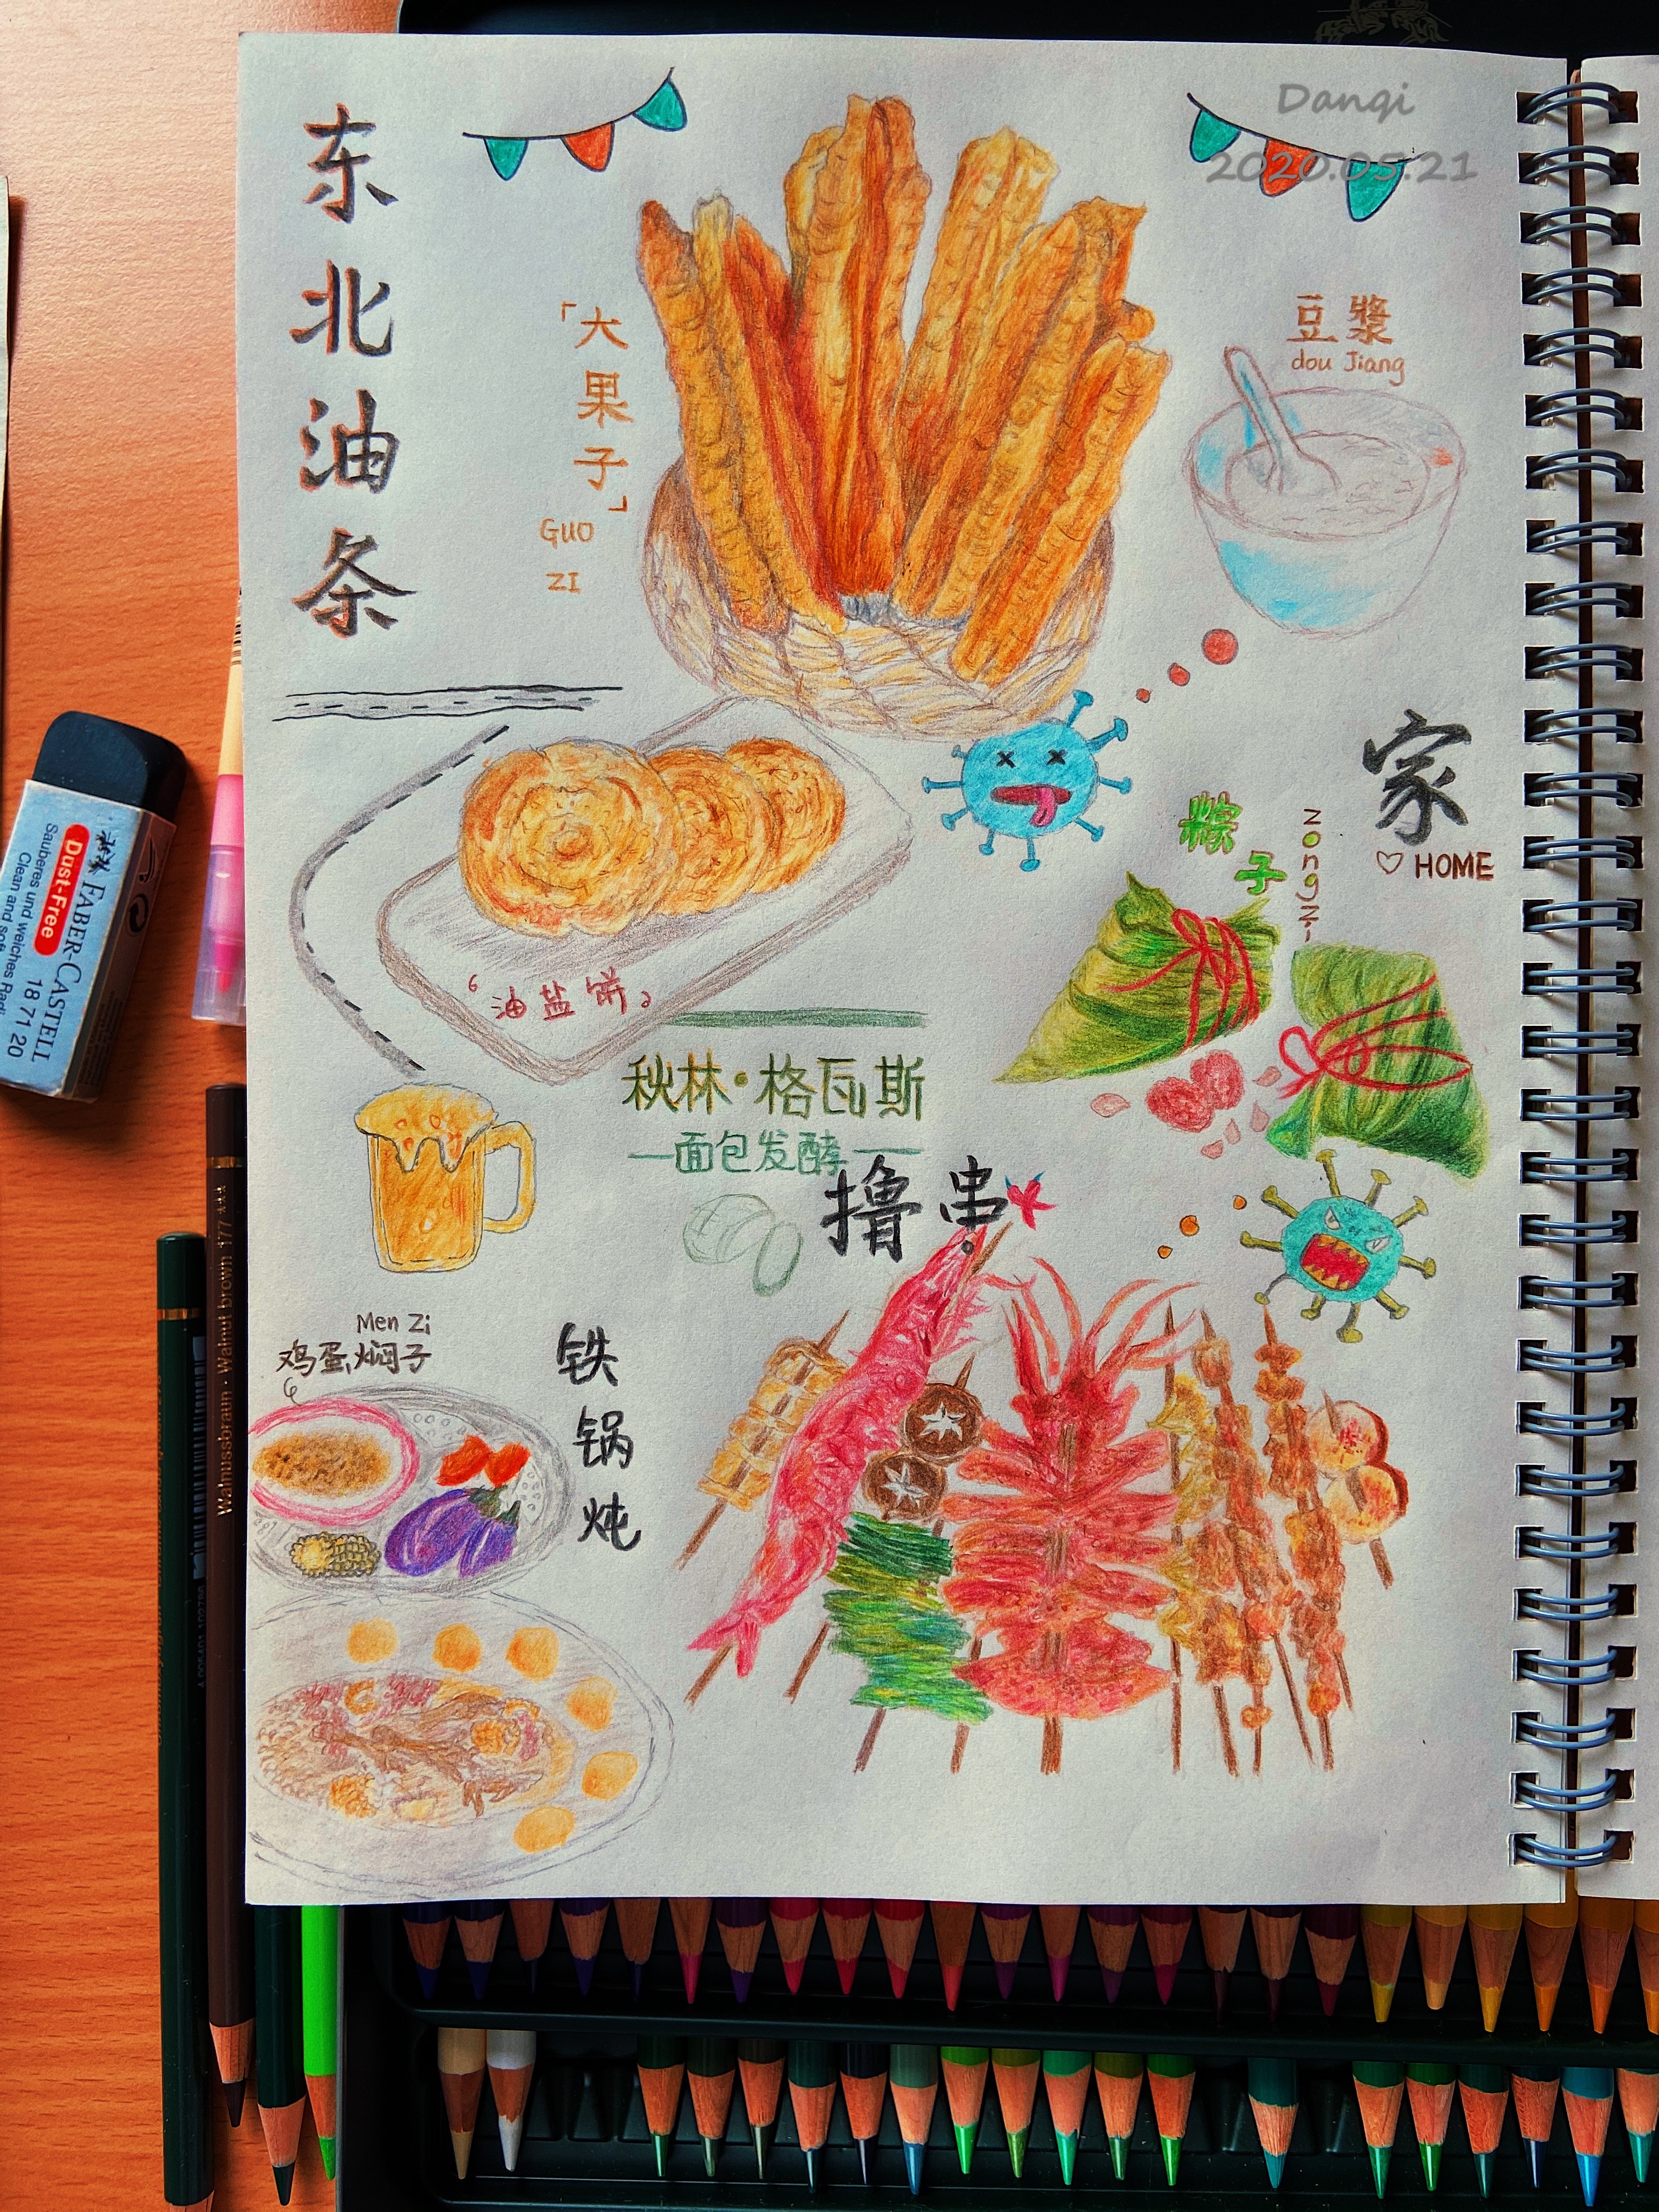 Danqi
2020.05.21
东北油条
「大果子」
GUO
ZI
豆漿
dou Jiang
家
♡ HOME
粽子
zongzi
油盐饼
秋林·格瓦斯
—面包发酵—
撸串
Men Zi
鸡蛋焖子
铁锅炖
FABER-CASTELL
Dust-Free
18 71 20
Sauberes und weiches Radi
Clean and soft
Walnussbraun · Walnut brown 177 ***